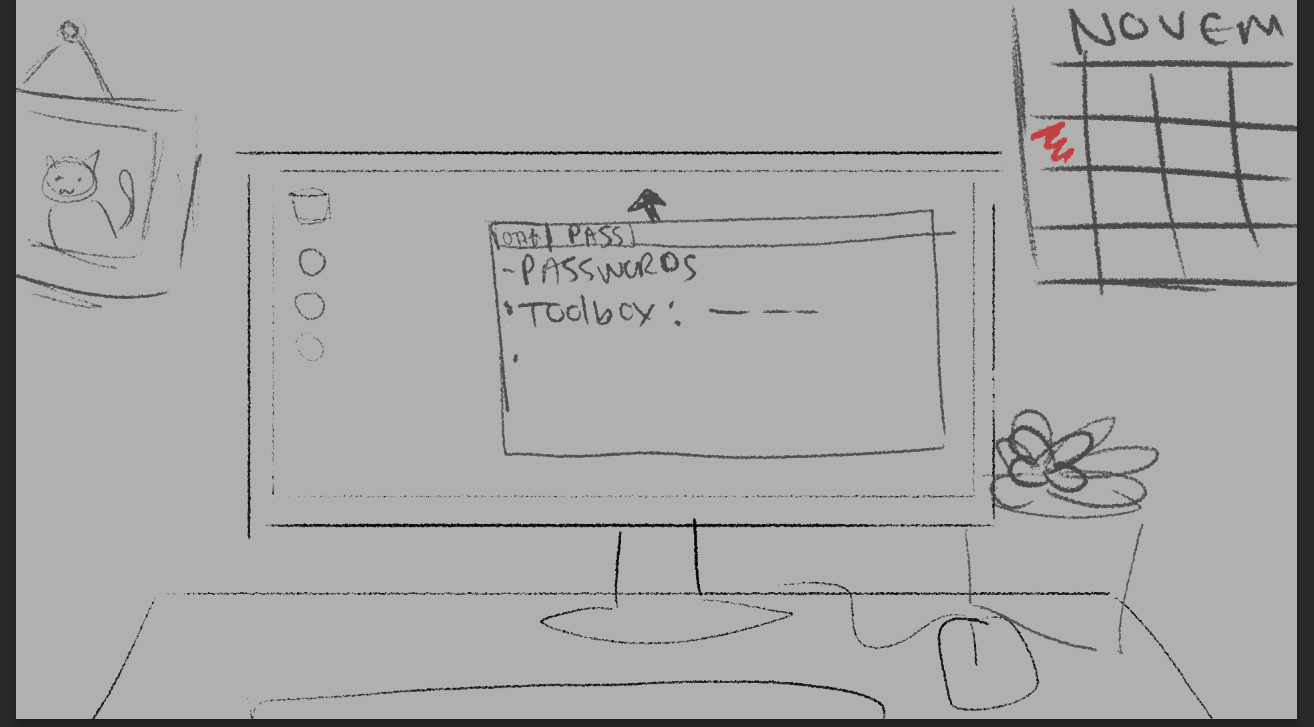 NOVEM
PASS
-PASSWORDS
•Toolbox: — — —
•